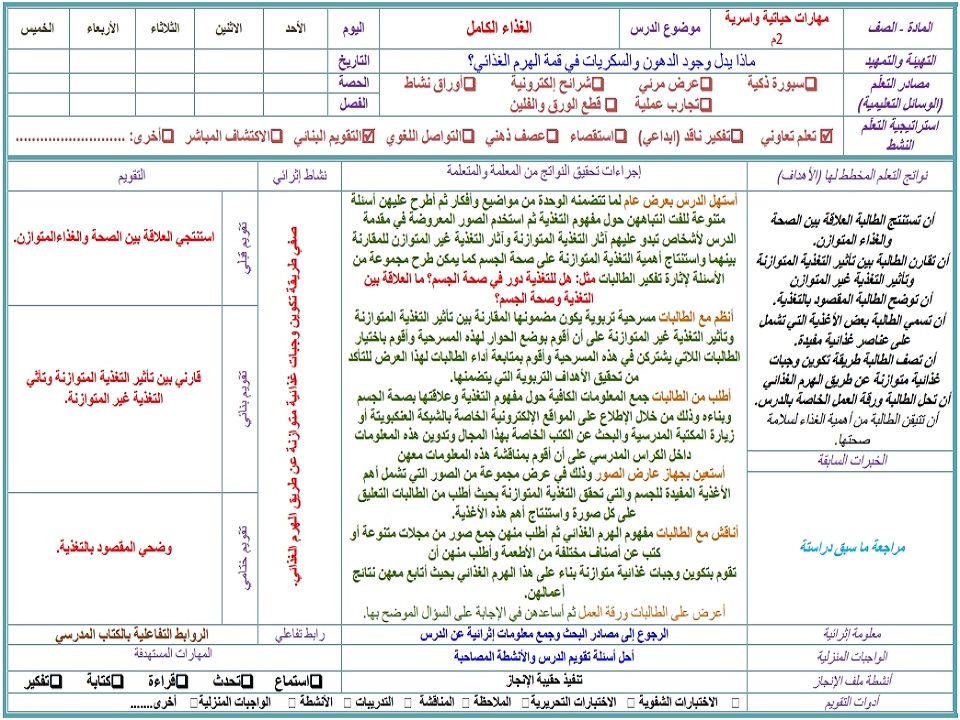 المادة - الصف
مهارات حياتية واسرية
2م
موضوع الدرس
الغذاء الكامل
اليوم
الأحد
الاثنين
الثلاثاء
الأربعاء
الخميس
التهيئة والتمهيد
ماذا يدل وجود الدهون والسكريات في قمة الهرم الغذائي؟
التاريخ
مصادر التعلم
(الوسائل التعليمية)
❑سبورة ذكية ❑عرض مرئي ❑شرائح إلكترونية ❑أوراق نشاط
❑تجارب عملية ❑ قطع الورق والفلين
الحصة
الفصل
استراتيجية التعلم
النشط
☑ تعلم تعاوني ❑تفكير ناقد (ابداعي) ❑استقصاء ❑عصف ذهني ❑التواصل اللغوي ☑التقويم البنائي ❑الاكتشاف المباشر ❑أخرى: ..........................
نواتج التعلم المخطط لها (الأهداف)
إجراءات تحقيق النواتج من المعلمة والمتعلمة
نشاط إثرائي
التقويم
أن تستنتج الطالبة العلاقة بين الصحة
والغذاء المتوازن.
أن تقارن الطالبة بين تأثير التغذية المتوازنة
وتأثير التغذية غير المتوازن
أن توضح الطالبة المقصود بالتغذية.
أن تسمي الطالبة بعض الأغذية التي تشمل
على عناصر غذائية مفيدة.
أن تصف الطالبة طريقة تكوين وجبات
غذائية متوازنة عن طريق الهرم الغذائي
أن تحل الطالبة ورقة العمل الخاصة بالدرس.
أن تتيقن الطالبة من أهمية الغذاء لسلامة
صحتها.
الخبرات السابقة
مراجعة ما سبق دراستة
أستهل الدرس بعرض عام لما تتضمنه الوحدة من مواضيع وأفكار ثم أطرح عليهن أسئلة
متنوعة للفت انتباههن حول مفهوم التغذية ثم استخدم الصور المعروضة في مقدمة
الدرس لأشخاص تبدو عليهم آثار التغذية المتوازنة وآثار التغذية غير المتوازن للمقارنة
بينهما واستنتاج أهمية التغذية المتوازنة على صحة الجسم كما يمكن طرح مجموعة من
الأسئلة لإثارة تفكير الطالبات مثل: هل للتغذية دور في صحة الجسم؟ ما العلاقة بين
التغذية وصحة الجسم؟
أنظم مع الطالبات مسرحية تربوية يكون مضمونها المقارنة بين تأثير التغذية المتوازنة
وتأثير التغذية غير المتوازنة على أن أقوم بوضع الحوار لهذه المسرحية وأقوم باختيار
الطالبات اللاتي يشتركن في هذه المسرحية وأقوم بمتابعة أداء الطالبات لهذا العرض للتأكد
من تحقيق الأهداف التربوية التي يتضمنها.
أطلب من الطالبات جمع المعلومات الكافية حول مفهوم التغذية وعلاقتها بصحة الجسم
وبناءه وذلك من خلال الإطلاع على المواقع الإلكترونية الخاصة بالشبكة العنكبوتية أو
زيارة المكتبة المدرسية والبحث عن الكتب الخاصة بهذا المجال وتدوين هذه المعلومات
داخل الكراس المدرسي على أن أقوم بمناقشة هذه المعلومات معهن
أستعين بجهاز عارض الصور وذلك في عرض مجموعة من الصور التي تشمل أهم
الأغذية المفيدة للجسم والتي تحقق التغذية المتوازنة بحيث أطلب من الطالبات التعليق
على كل صورة واستنتاج أهم هذه الأغذية.
أناقش مع الطالبات مفهوم الهرم الغذائي ثم أطلب منهن جمع صور من مجلات متنوعة أو
كتب عن أصناف مختلفة من الأطعمة وأطلب منهن أن
تقوم بتكوين وجبات غذائية متوازنة بناء على هذا الهرم الغذائي بحيث أتابع معهن نتائج
أعمالهن.
أعرض على الطالبات ورقة العمل ثم أساعدهن في الإجابة على السؤال الموضح بها.
صفي طريقة تكوين وجبات غذائية متوازنة عن طريق الهرم الغذائي.
تقويم قبلي
استنتجي العلاقة بين الصحة والغذاءالمتوازن.
تقويم بنائي
قارني بين تأثير التغذية المتوازنة وتأثي
التغذية غير المتوازنة.
تقويم ختامي
وضحي المقصود بالتغذية.
معلومة إثرائية
الرجوع إلى مصادر البحث وجمع معلومات إثرائية عن الدرس
رابط تفاعلي
الروابط التفاعلية بالكتاب المدرسي
الواجبات المنزلية
أحل أسئلة تقويم الدرس والأنشطة المصاحبة
المهارات المستهدفة
أنشطة ملف الإنجاز
تنفيذ حقيبة الإنجاز
❑استماع ❑تحدث ❑قراءة ❑كتابة ❑تفكير
أدوات التقويم
□ الاختبارات الشفوية □ الاختبارات التحريرية □ الملاحظة □ المناقشة □ التدريبات □ الأنشطة □ الواجبات المنزلية □ أخرى.......